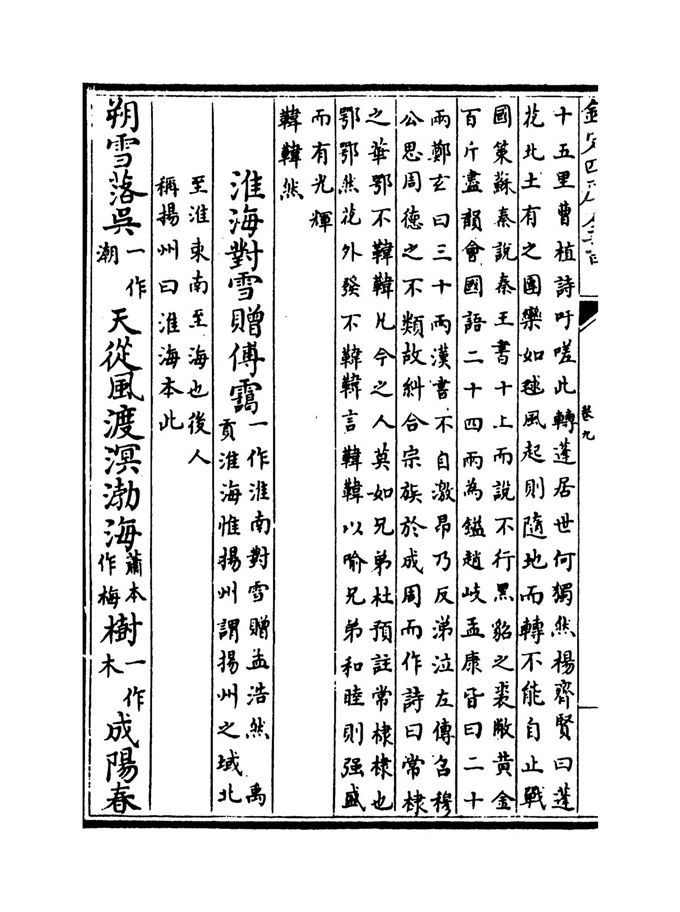 十五里曹植詩吁嗟此轉蓬居世何獨然楊齊賢曰蓬
花北土有之團欒如毬風起則隨地而轉不能自止戰
國策蘇秦說秦王書十上而說不行黑貂之裘敝黃金
百斤盡韻會國語二十四兩為鎰趙岐孟康皆曰二十
兩鄭玄曰三十兩漢書不自激昂乃反涕泣左傳召穆
公思周德之不類故糾合宗族於成周而作詩曰常棣
之華鄂不韡韡凡今之人莫如兄弟杜預註常棣棣也
鄂鄂然花外發不韡韡言韡韡以喻兄弟和睦則强盛
而有光輝
韡韡然
淮海對雪贈傅靄一作淮南對雪贈孟浩然 禹
貢淮海惟揚州謂揚州之域北
至淮東南至海也後人
稱揚州曰淮海本此
朔雪落吳一作潮天從風渡溟渤海蕭本作梅樹一作木成陽春
卷九